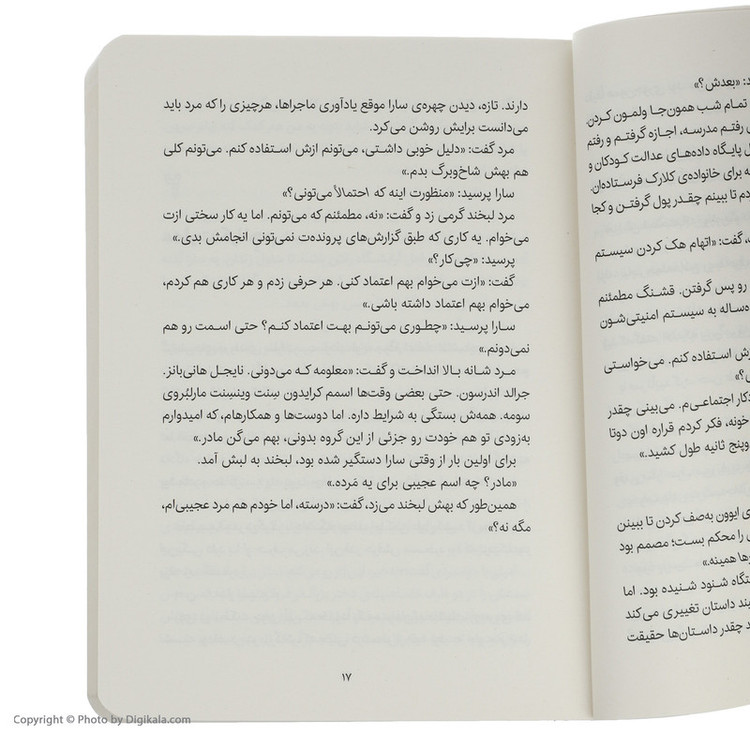 د: «بعدش؟»
تمام شب همون‌جا ولمون کردن.
رفتم مدرسه، اجازه گرفتم و رفتم
پایگاه داده‌های عدالت کودکان و
برای خانواده‌ی کلارک فرستاده‌ان.
تا ببینم چقدر پول گرفتن و کجا
گفت: «اتهام هک کردن سیستم
رو پس گرفتن. قشنگ مطمئنم
ساله به سیستم امنیتی‌شون
استفاده کنم. می‌خواستی
اجتماعی‌م. می‌بینی چقدر
خونه، فکر کردم قراره اون دوتا
وپنج ثانیه طول کشید.»
ایوون به‌صف کردن تا ببینن
را محکم بست؛ مصمم بود
همینه.»
شنود شنیده بود. اما
داستان تغییری می‌کند
چقدر داستان‌ها حقیقت
دارند. تازه، دیدن چهره‌ی سارا موقع یادآوری ماجراها، هرچیزی را که مرد باید
می‌دانست برایش روشن می‌کرد.
مرد گفت: «دلیل خوبی داشتی، می‌تونم ازش استفاده کنم. می‌تونم کلی
هم بهش شاخ‌وبرگ بدم.»
سارا پرسید: «منظورت اینه که احتمالاً می‌تونی؟»
مرد لبخند گرمی زد و گفت: «نه، مطمئنم که می‌تونم. اما یه کار سختی ازت
می‌خوام. یه کاری که طبق گزارش‌های پرونده‌ت نمی‌تونی انجامش بدی.»
پرسید: «چی‌کار؟»
گفت: «ازت می‌خوام بهم اعتماد کنی. هر حرفی زدم و هر کاری هم کردم،
می‌خوام بهم اعتماد داشته باشی.»
سارا پرسید: «چطوری می‌تونم بهت اعتماد کنم؟ حتی اسمت رو هم
نمی‌دونم.»
مرد شانه بالا انداخت و گفت: «معلومه که می‌دونی. نایجل هانی‌بانز.
جرالد اندرسون. حتی بعضی وقت‌ها اسمم کرایدون سِنت وینسِنت مارلبُروی
سومه. همه‌ش بستگی به شرایط داره. اما دوست‌ها و همکارهام، که امیدوارم
به‌زودی تو هم خودت رو جزئی از این گروه بدونی، بهم می‌گن مادر.»
برای اولین بار از وقتی سارا دستگیر شده بود، لبخند به لبش آمد.
«مادر؟ چه اسم عجیبی برای یه مَرده.»
همین‌طور که بهش لبخند می‌زد، گفت: «درسته، اما خودم هم مرد عجیبی‌ام،
مگه نه؟»
۱۷
Copyright © Photo by Digikala.com